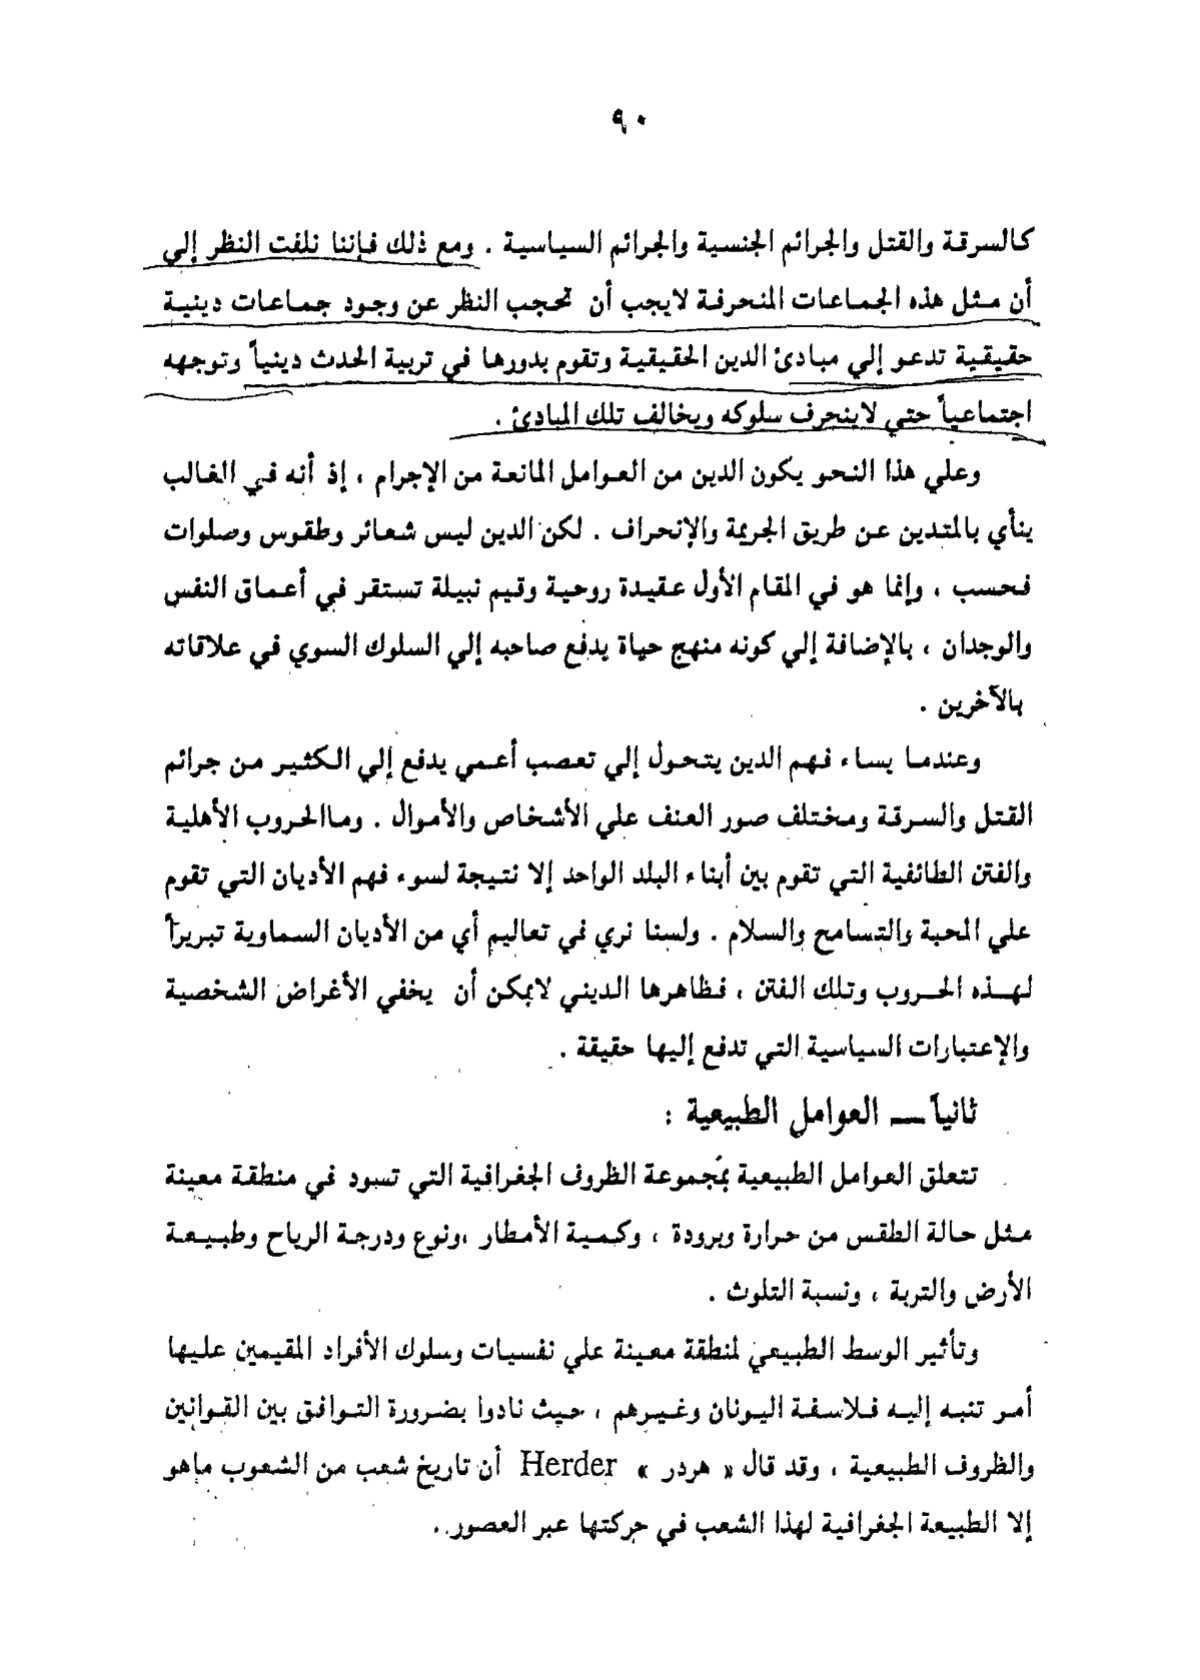 ٩٠
كالسرقة والقتل والجرائم الجنسية والجرائم السياسية . ومع ذلك فإننا نلفت النظر إلي
أن مثل هذه الجماعات المنحرفة لايجب أن تحجب النظر عن وجود جماعات دينية
حقيقية تدعو إلي مبادئ الدين الحقيقية وتقوم بدورها في تربية الحدث دينياً وتوجهه
اجتماعياً حتي لاينحرف سلوكه ويخالف تلك المبادئ .
وعلي هذا النحو يكون الدين من العوامل المانعة من الإجرام ، إذ أنه في الغالب
ينأي بالمتدين عن طريق الجريمة والإنحراف . لكن الدين ليس شعائر وطقوس وصلوات
فحسب ، وإنما هو في المقام الأول عقيدة روحية وقيم نبيلة تستقر في أعماق النفس
والوجدان ، بالإضافة إلي كونه منهج حياة يدفع صاحبه إلي السلوك السوي في علاقاته
بالآخرين .
وعندما يساء فهم الدين يتحول إلي تعصب أعمي يدفع إلي الكثير من جرائم
القتل والسرقة ومختلف صور العنف علي الأشخاص والأموال . وماالحروب الأهلية
والفتن الطائفية التي تقوم بين أبناء البلد الواحد إلا نتيجة لسوء فهم الأديان التي تقوم
علي المحبة والتسامح والسلام . ولسنا نري في تعاليم أي من الأديان السماوية تبريراً
لهذه الحروب وتلك الفتن ، فظاهرها الديني لايمكن أن يخفي الأغراض الشخصية
والإعتبارات السياسية التي تدفع إليها حقيقة .
ثانياً ــ العوامل الطبيعية :
تتعلق العوامل الطبيعية بمجموعة الظروف الجغرافية التي تسود في منطقة معينة
مثل حالة الطقس من حرارة وبرودة ، وكمية الأمطار ،ونوع ودرجة الرياح وطبيعة
الأرض والتربة ، ونسبة التلوث .
وتأثير الوسط الطبيعي لمنطقة معينة علي نفسيات وسلوك الأفراد المقيمين عليها
أمر تنبه إليه فلاسفة اليونان وغيرهم ، حيث نادوا بضرورة التوافق بين القوانين
والظروف الطبيعية ، وقد قال « هردر » Herder أن تاريخ شعب من الشعوب ماهو
إلا الطبيعة الجغرافية لهذا الشعب في حركتها عبر العصور .